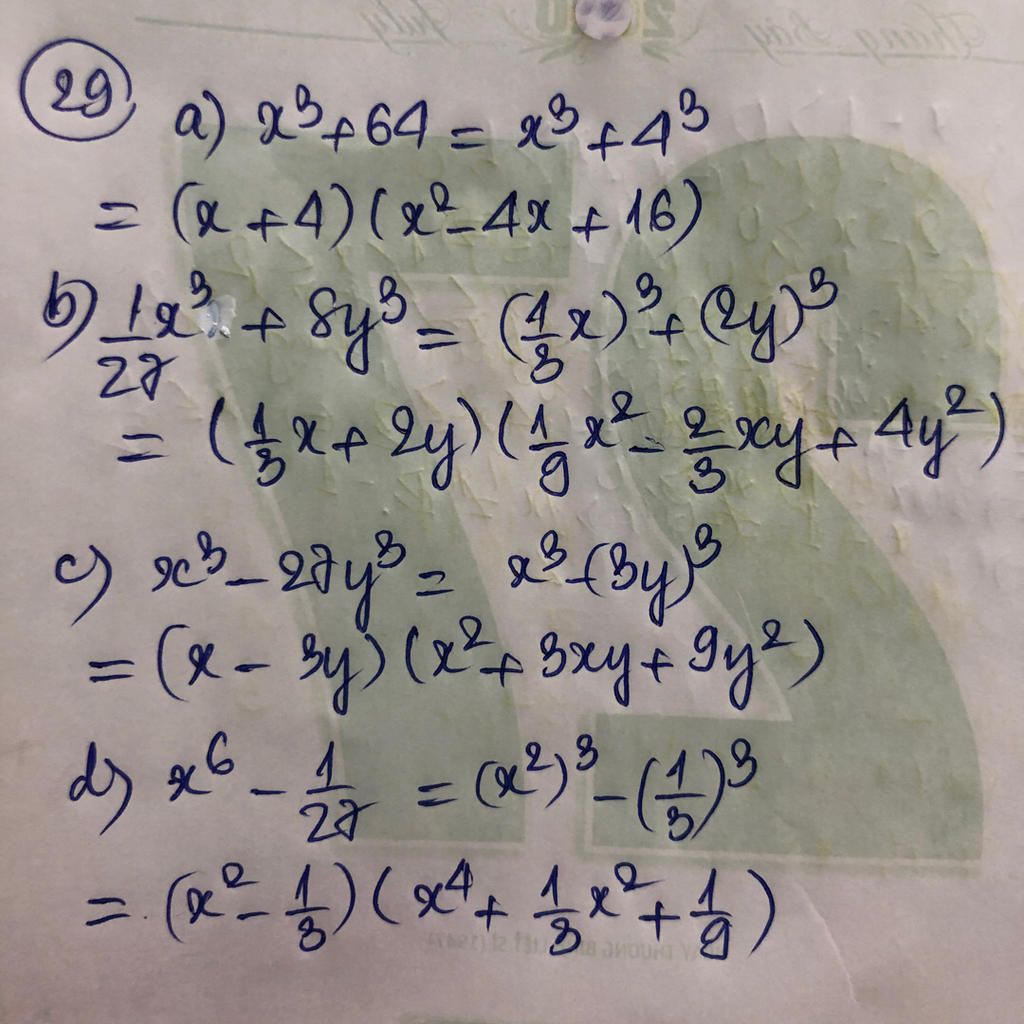 29
a) x³ + 64 = x³ + 4³
= (x + 4)(x² - 4x + 16)
b) 1/27 x³ + 8y³ = (1/3 x)³ + (2y)³
= (1/3 x + 2y)(1/9 x² - 2/3 xy + 4y²)
c) x³ - 27y³ = x³ - (3y)³
= (x - 3y)(x² + 3xy + 9y²)
d) x⁶ - 1/27 = (x²)³ - (1/3)³
= (x² - 1/3)(x⁴ + 1/3 x² + 1/9)